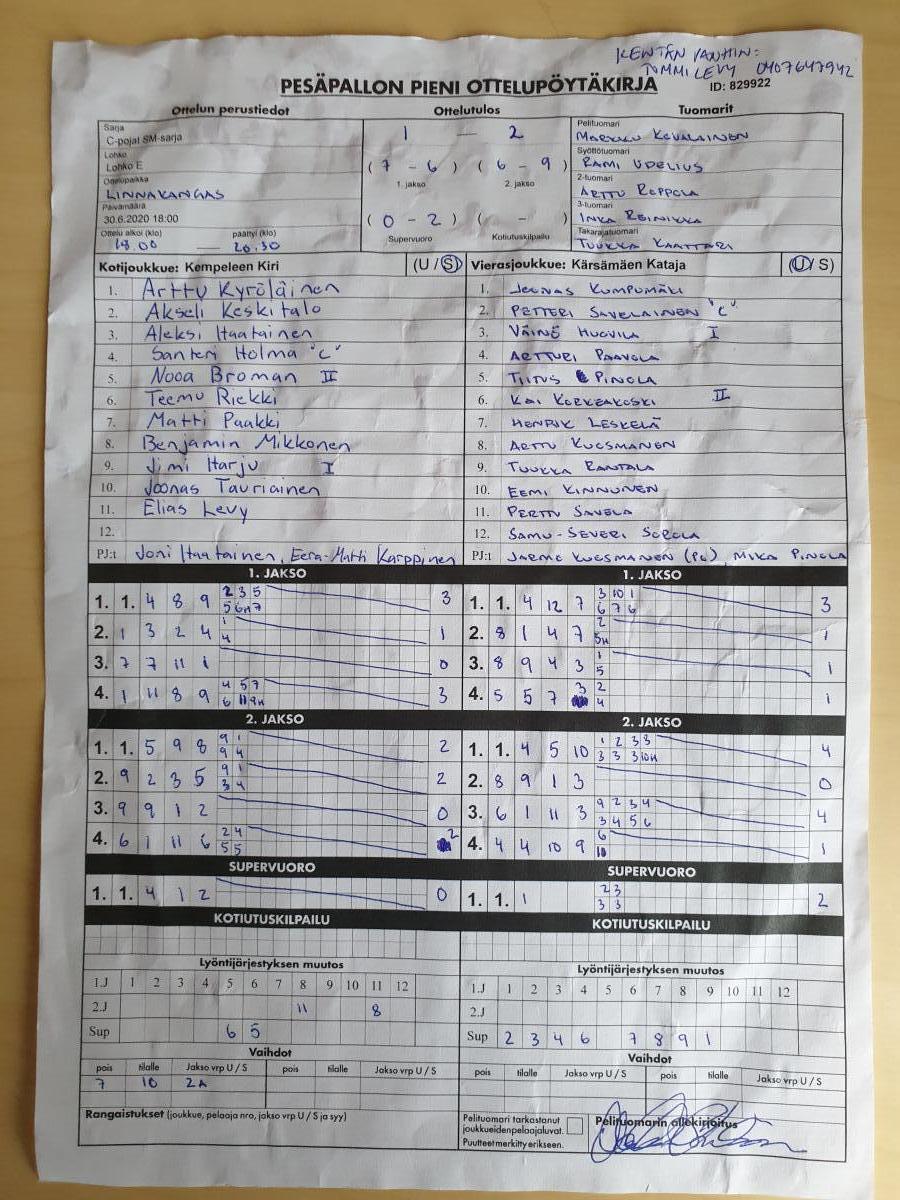 KENTÄN VANHIN:
TOMMI LEVY 0407647942
PESÄPALLON PIENI OTTELUPÖYTÄKIRJA
ID: 829922
Ottelun perustiedot Ottelutulos Tuomarit
Sarja
C-pojat SM-sarja
Lohko
Lohko E
Ottelupaikka
LINNAKANGAS
Päivämäärä
30.6.2020 18:00
Ottelu alkoi (klo) päättyi (klo)
18.00 — 20.30
1 — 2
(7 - 6) (6 - 9)
1. jakso 2. jakso
(0 - 2) ( - )
Supervuoro Kotiutuskilpailu
Pelituomari
MARKKU KOVALAINEN
Syöttötuomari
RAMI UDELIUS
2-tuomari
ARTTU ROPPOLA
3-tuomari
INKA REINIKKA
Takarajatuomari
TUUKKA KAATTARI
Kotijoukkue: Kempeleen Kiri (U / S)
1. Arttu Kyröläinen
2. Akseli Keskitalo
3. Aleksi Haatainen
4. Santeri Holma "C"
5. Nooa Broman II
6. Teemu Riekki
7. Matti Paakki
8. Benjamin Mikkonen
9. Jimi Harju I
10. Joonas Tauriainen
11. Elias Levy
12.
PJ:t Joni Haatainen, Eera-Matti Karppinen
Vierasjoukkue: Kärsämäen Kataja (U / S)
1. JOONAS KUMPUMÄKI
2. PETTERI SAVELAINEN "C"
3. VÄINÖ HUOVILA I
4. ARTTURI PAAVOLA
5. TIITUS PINOLA
6. KAI KORKEAKOSKI II
7. HENRIK LESKELÄ
8. ARTTU KUOSMANEN
9. TUUKKA RANTALA
10. EEMI KINNUNEN
11. PERTTU SAVELA
12. SAMU-SEVERI SOROLA
PJ:t JARMO KUOSMANEN (PJ), MIKA PINOLA
1. JAKSO
1. 1. 4 8 9 2 3 5 3
5 6H7
2. 1 3 2 4 1 1
4
3. 7 7 11 1 0
4. 1 11 8 9 4 5 7 3
6 11 9H
2. JAKSO
1. 1. 5 9 8 9 1 2
9 4
2. 9 2 3 5 9 1 2
3 4
3. 9 9 1 2 0
4. 6 1 11 6 2 4 2
5 5
SUPERVUORO
1. 1. 4 1 2 0
KOTIUTUSKILPAILU
1. JAKSO
1. 1. 4 12 7 3 10 1 3
6 7 6
2. 8 1 4 7 2 1
5H
3. 8 9 4 3 1 1
5
4. 5 5 7 3 2 1
4
2. JAKSO
1. 1. 4 5 10 1 2 3 3 4
3 3 3 10H
2. 8 9 1 3 0
3. 6 1 11 3 9 2 3 4 4
3 4 5 6
4. 4 4 10 9 6 1
10
SUPERVUORO
1. 1. 1 2 3 2
3 3
KOTIUTUSKILPAILU
Lyöntijärjestyksen muutos
1.J 1 2 3 4 5 6 7 8 9 10 11 12
2.J 11 8
Sup 6 5
Vaihdot
pois tilalle Jakso vrp U / S pois tilalle Jakso vrp U / S
7 10 2A
Rangaistukset (joukkue, pelaaja nro, jakso vrp U / S ja syy)
Lyöntijärjestyksen muutos
1.J 1 2 3 4 5 6 7 8 9 10 11 12
2.J
Sup 2 3 4 6 7 8 9 1
Vaihdot
pois tilalle Jakso vrp U / S pois tilalle Jakso vrp U / S
Pelituomari tarkastanut
joukkueiden pelaajaluvat.
Puutteet merkitty erikseen.
Pelituomarin allekirjoitus